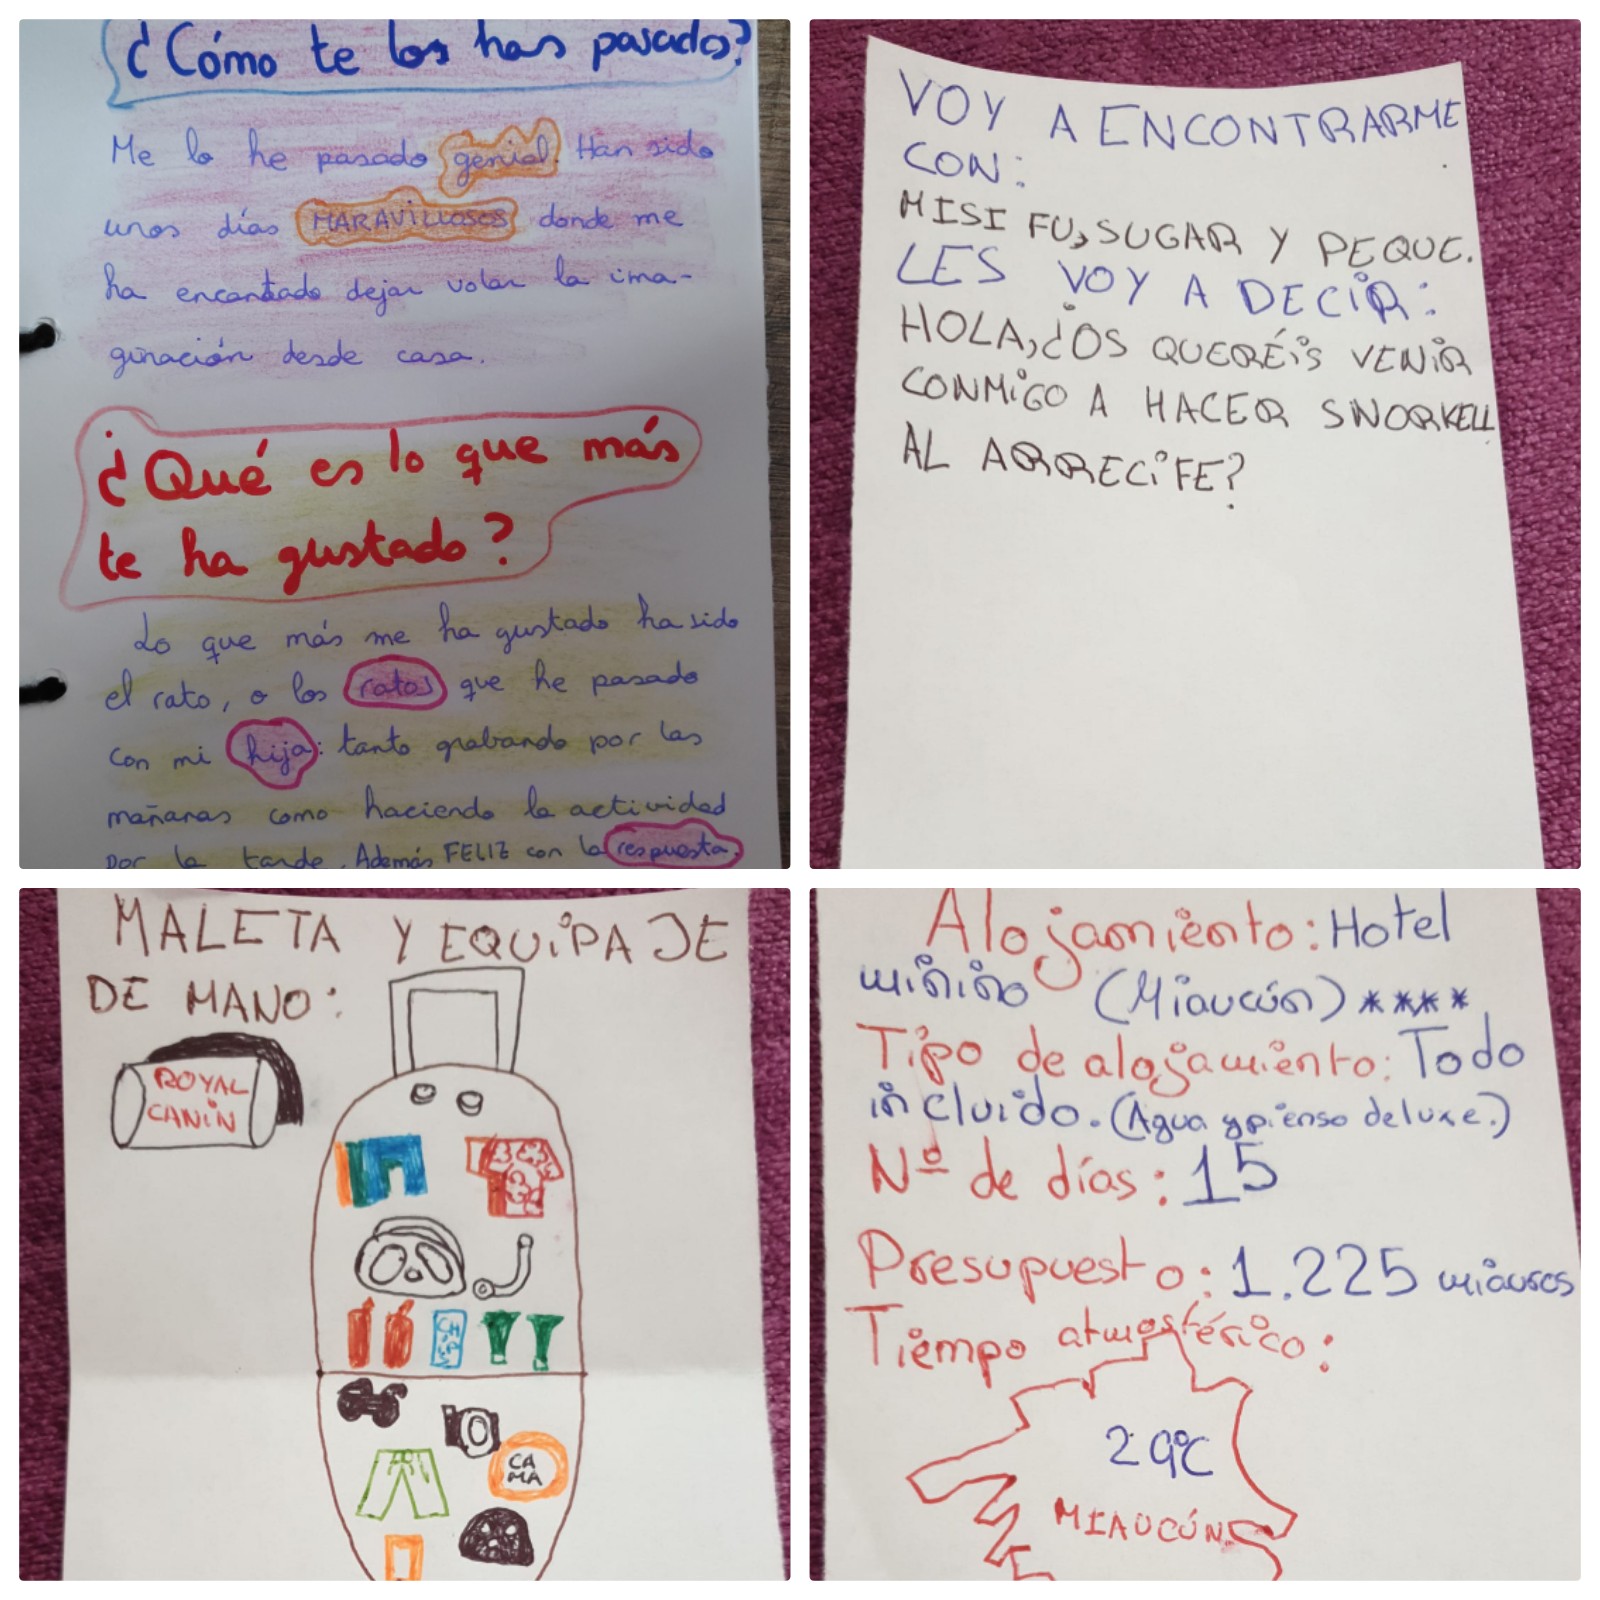 ¿Cómo te los has pasado?
Me lo he pasado genial. Han sido
unos días MARAVILLOSOS donde me
ha encantado dejar volar la ima-
ginación desde casa.
¿Qué es lo que más
te ha gustado?
Lo que más me ha gustado ha sido
el rato, o los ratos que he pasado
con mi hija: tanto grabando por las
mañanas como haciendo la actividad
por la tarde. Además FELIZ con la respuesta.
VOY A ENCONTRARME
CON:
MISI FU, SUGAR Y PEQUE.
LES VOY A DECIR:
HOLA, ¿OS QUERÉIS VENIR
CONMIGO A HACER SNORKELL
AL ARRECIFE?
MALETA Y EQUIPAJE
DE MANO:
ROYAL
CANIN
CA
MA
Alojamiento: Hotel
minino (Miaucún) ****
Tipo de alojamiento: Todo
incluido. (Agua y pienso deluxe.)
Nº de días: 15
Presupuesto: 1.225 miauros
Tiempo atmosférico:
29ºC
MIAUCÚN